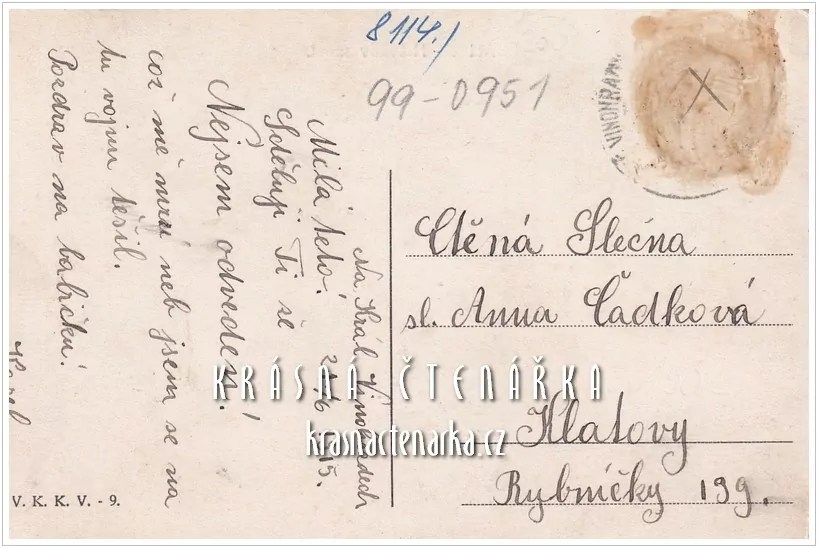 8114./
99-0951
VINOHRADY
Na Král. Vinohradech
21/6 1915.
Milá teto!
Sděluji Ti že
Nejsem odveden!
což mě mrzí neb jsem se na
tu vojnu těšil.
Pozdrav na babičku!
Karel
Ctěná Slečna
sl. Anna Čadková
Klatovy
Rybníčky 139.
KRÁSNÁ ČTENÁŘKA
krasnactenarka.cz
V. K. K. V. - 9.